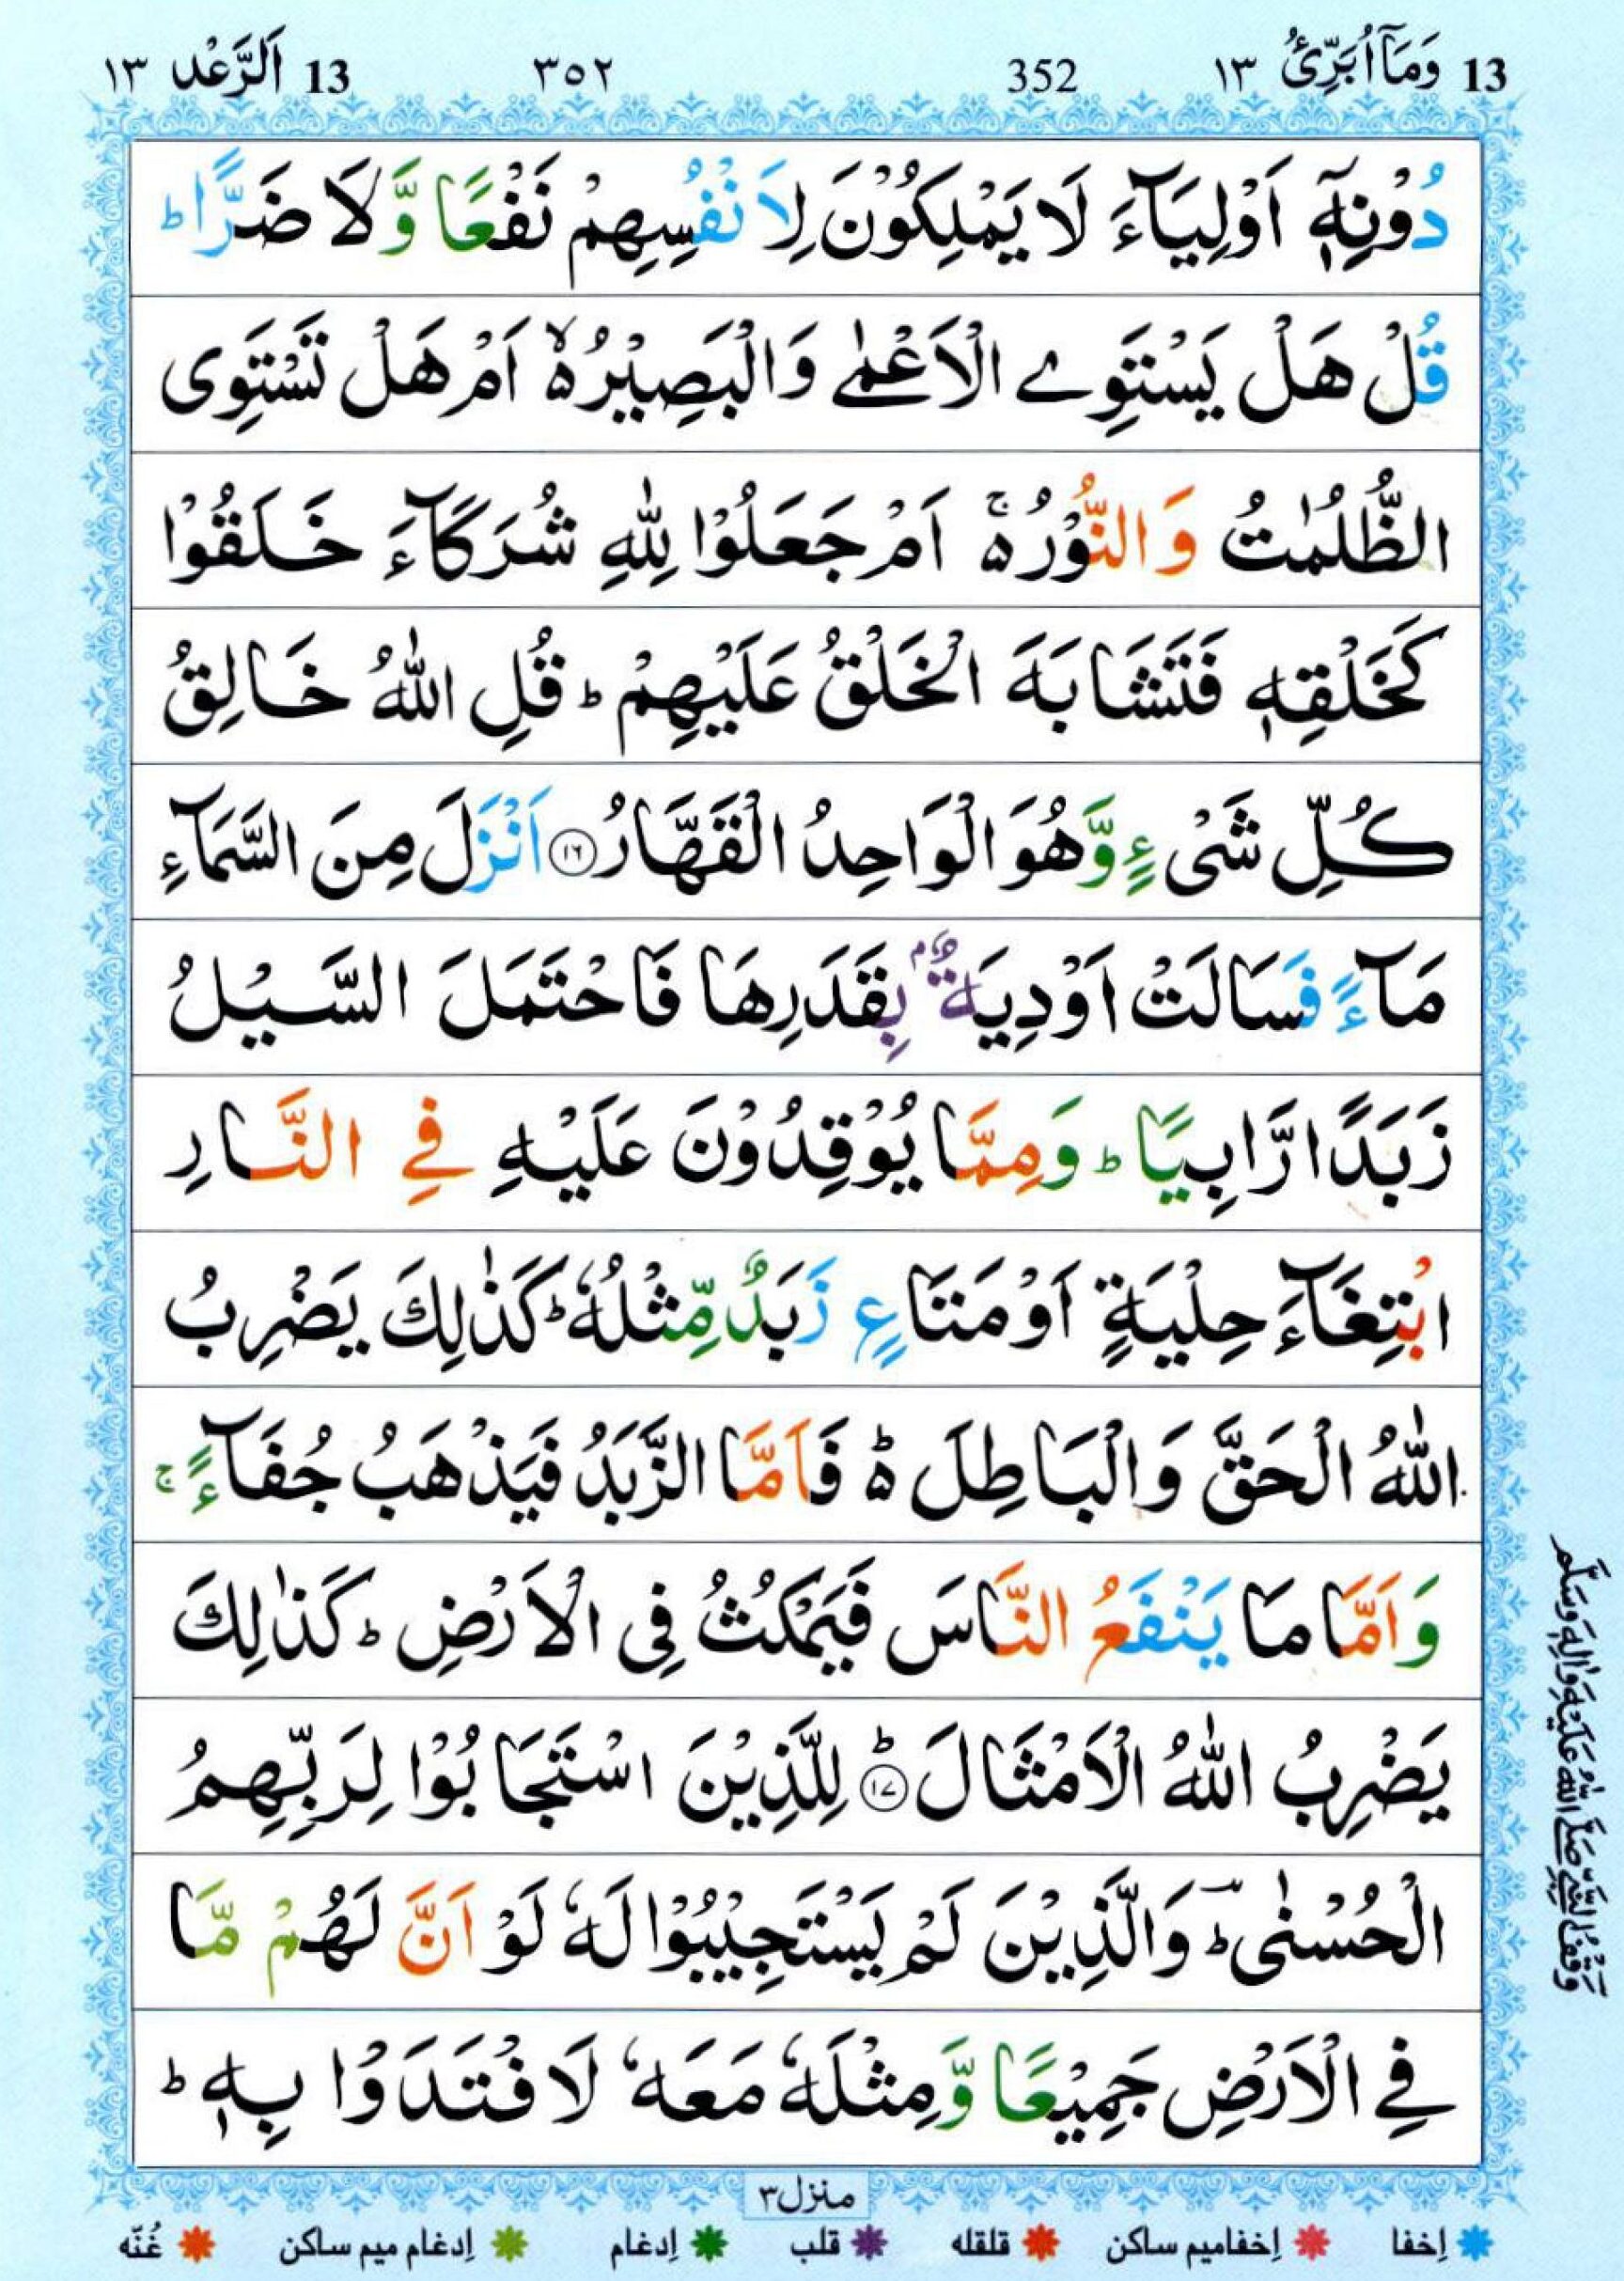 13 وَمَآ اُبَرِّئُ ١٣ 352 ٣٥٢ 13 اَلرَّعْد ١٣
دُوْنِهٖۤ اَوْلِيَآءَ لَا يَمْلِكُوْنَ لِاَنْفُسِهِمْ نَفْعًا وَّلَا ضَرًّا ؕ
قُلْ هَلْ يَسْتَوِے الْاَعْمٰى وَالْبَصِيْرُ ۙ۬ اَمْ هَلْ تَسْتَوِى
الظُّلُمٰتُ وَالنُّوْرُ ۚ۬ اَمْ جَعَلُوْا لِلّٰهِ شُرَكَآءَ خَلَقُوْا
كَخَلْقِهٖ فَتَشَابَهَ الْخَلْقُ عَلَيْهِمْ ؕ قُلِ اللّٰهُ خَالِقُ
كُلِّ شَىْءٍ وَّهُوَ الْوَاحِدُ الْقَهَّارُ ۝١٦ اَنْزَلَ مِنَ السَّمَآءِ
مَآءً فَسَالَتْ اَوْدِيَةٌۢ بِقَدَرِهَا فَاحْتَمَلَ السَّيْلُ
زَبَدًا رَّابِيًا ؕ وَمِمَّا يُوْقِدُوْنَ عَلَيْهِ فِے النَّارِ
ابْتِغَآءَ حِلْيَةٍ اَوْ مَتَاعٍ زَبَدٌ مِّثْلُهٗ ؕ كَذٰلِكَ يَضْرِبُ
اللّٰهُ الْحَقَّ وَالْبَاطِلَ ۬ؕ فَاَمَّا الزَّبَدُ فَيَذْهَبُ جُفَآءً ۚ
وَاَمَّا مَا يَنْفَعُ النَّاسَ فَيَمْكُثُ فِى الْاَرْضِ ؕ كَذٰلِكَ
يَضْرِبُ اللّٰهُ الْاَمْثَالَ ؕ۝١٧ لِلَّذِيْنَ اسْتَجَابُوْا لِرَبِّهِمُ
الْحُسْنٰى ؕؔ وَالَّذِيْنَ لَمْ يَسْتَجِيْبُوْا لَهٗ لَوْ اَنَّ لَهُمْ مَّا
فِے الْاَرْضِ جَمِيْعًا وَّمِثْلَهٗ مَعَهٗ لَافْتَدَوْا بِهٖ ؕ
وَقْفُ النَّبِيِّ صَلَّى اللّٰهُ عَلَيْهِ وَاٰلِهٖ وَسَلَّم
منزل ٣
اِخفا اِخفامیم ساکن قلقله قلب اِدغام اِدغام میم ساکن غُنّه